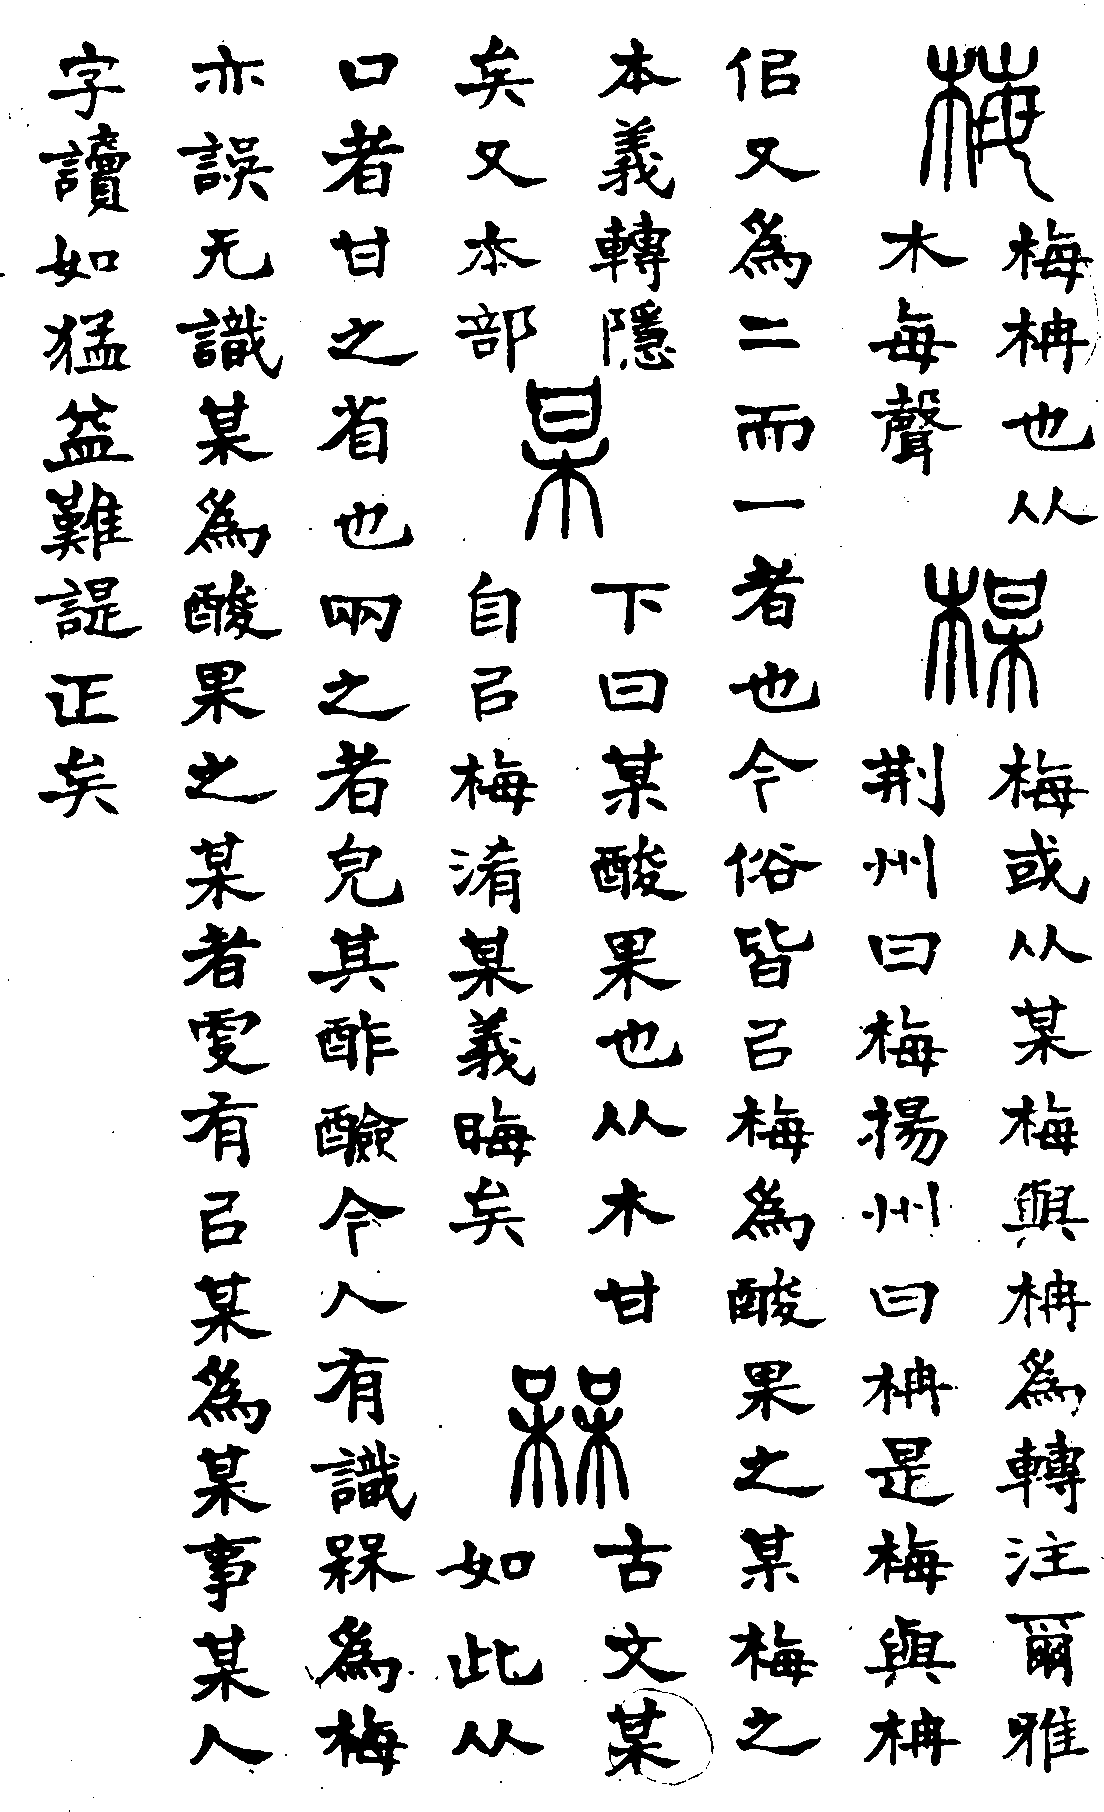 梅
梅枏也从
木每聲
楳
梅或从某梅與枏為轉注爾雅
荆州曰梅揚州曰枏是梅與枏
佀又為二而一者也今俗皆㠯梅為酸果之某梅之
本義轉隱
矣又本部
某
下曰某酸果也从木甘
自㠯梅淆某義晦矣
槑
古文某
如此从
口者甘之省也㒳之者皃其酢醶今人有識槑為梅
亦誤无識某為酸果之某者有㠯某為某事某人
字讀如猛益難諟正矣